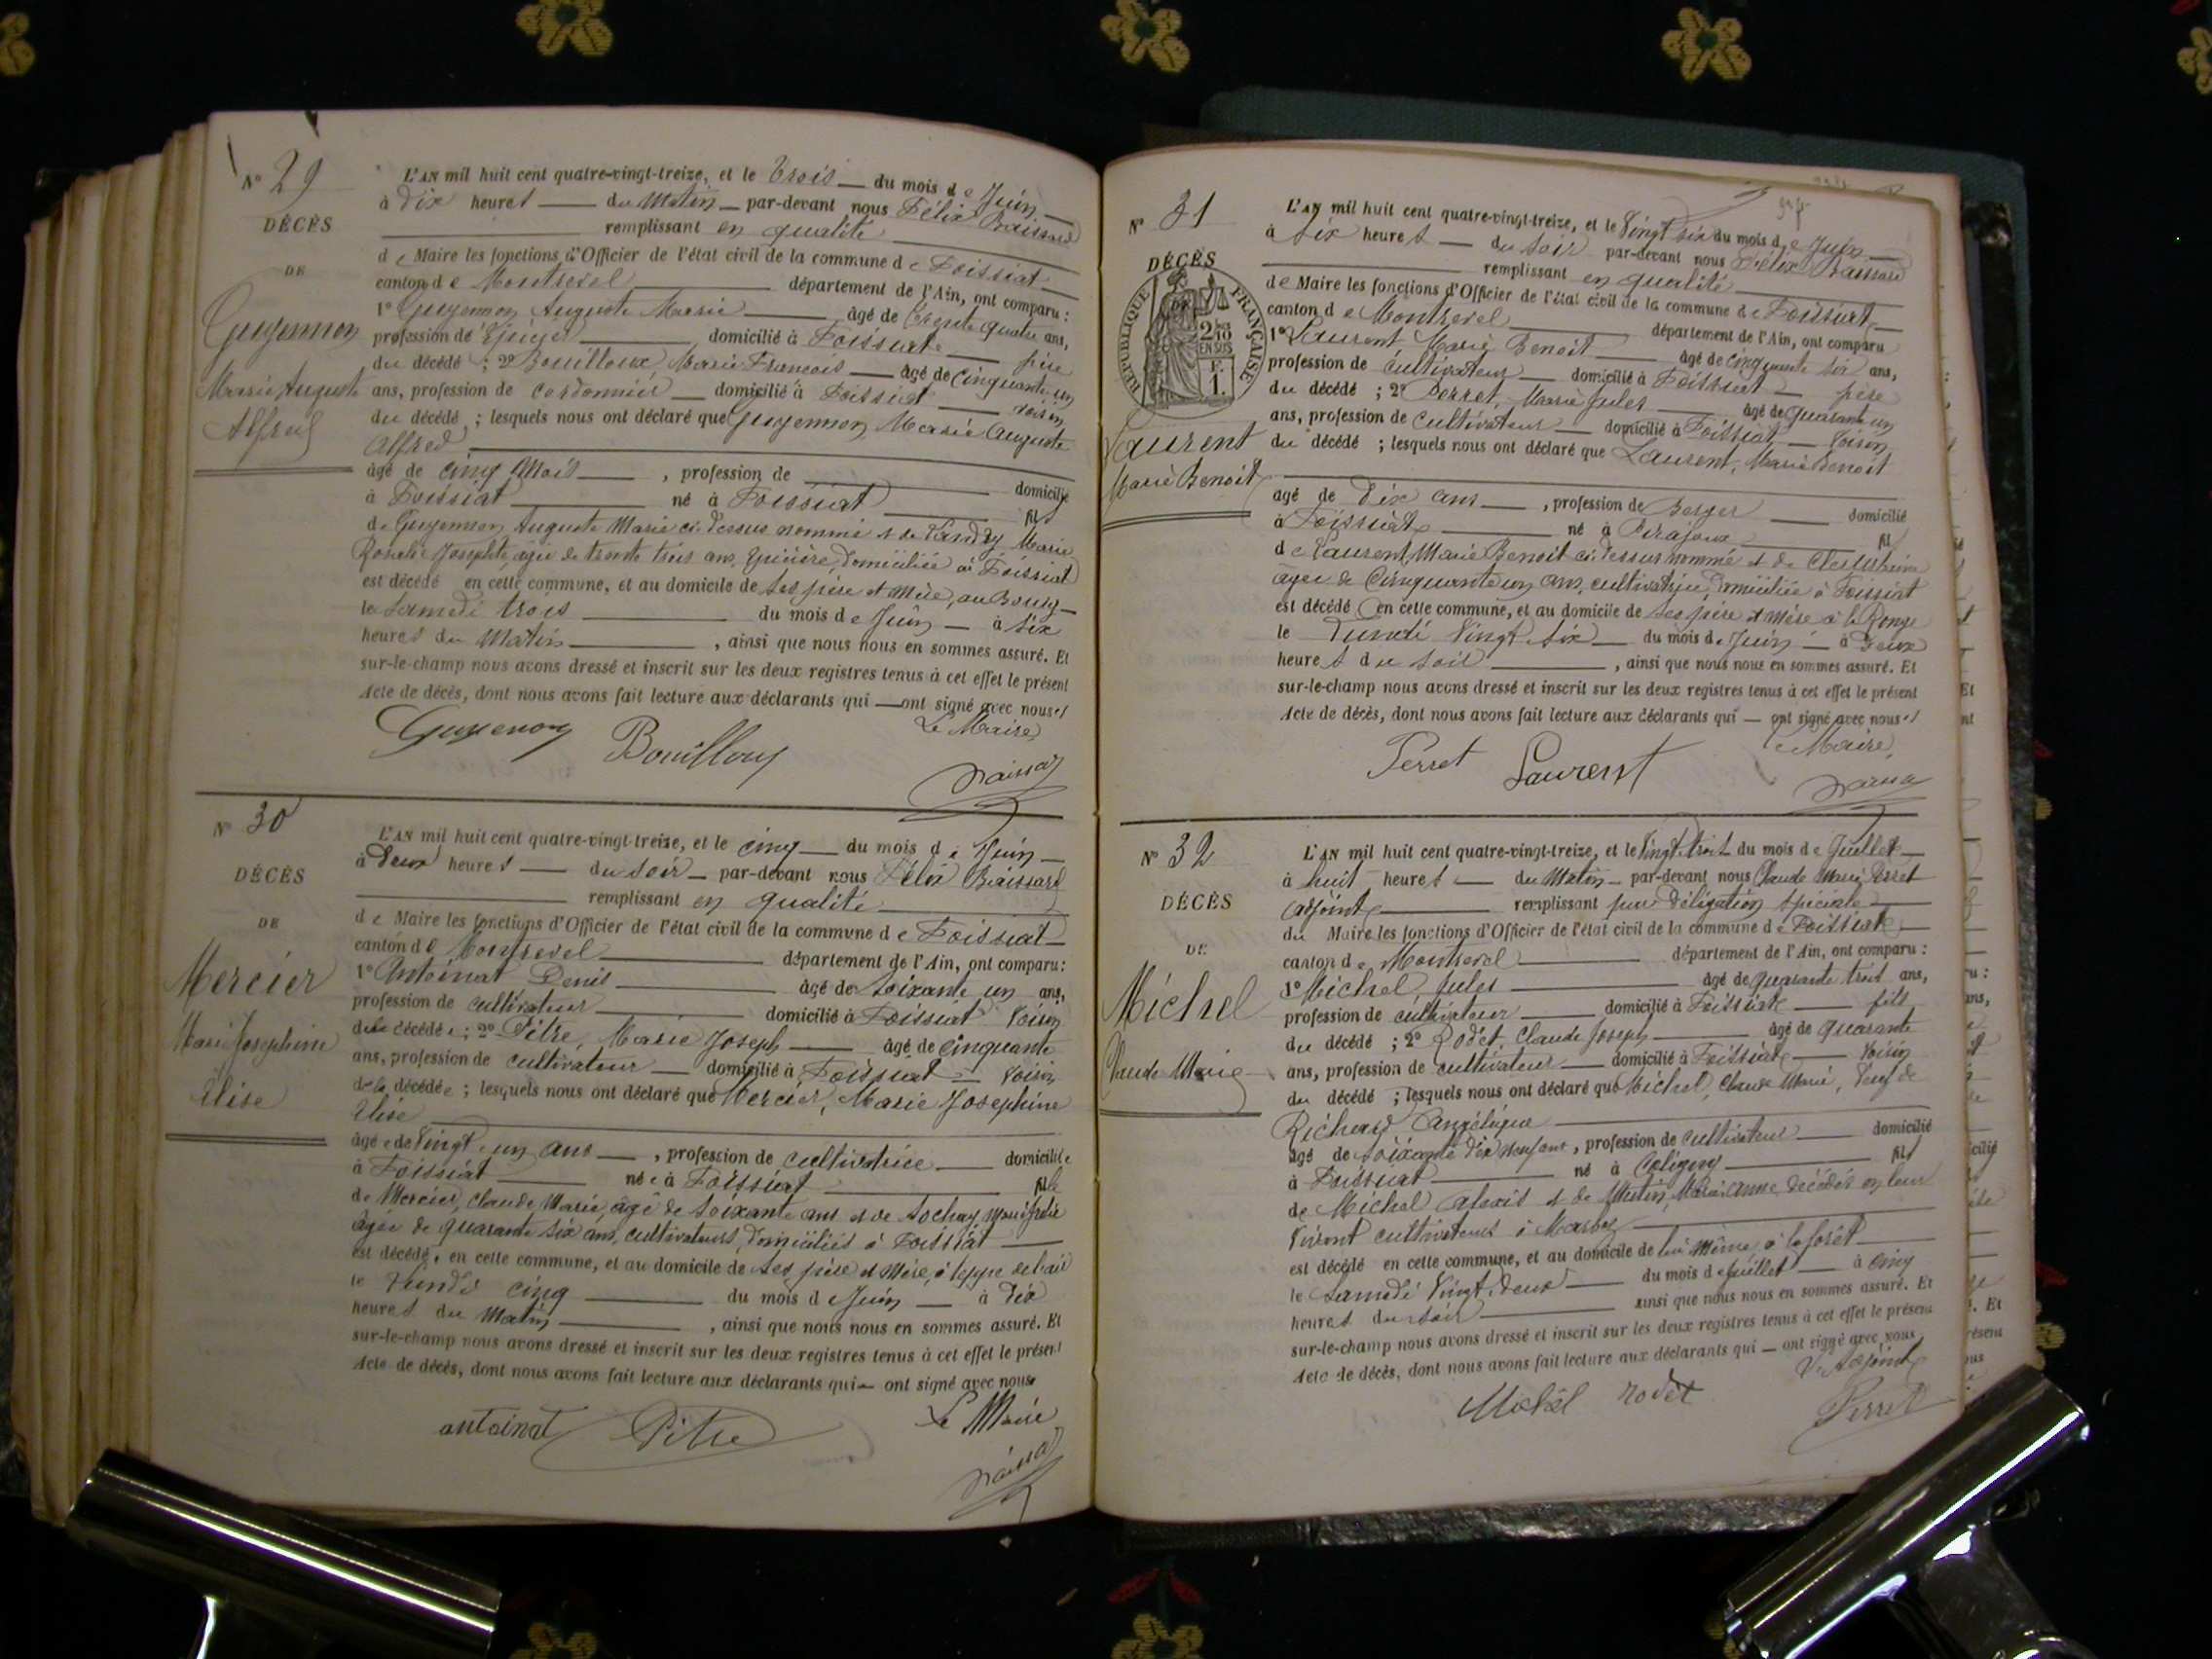 N° 29
DÉCÈS
DE
Guyennon
Marie Auguste
Alfred
L'AN mil huit cent quatre-vingt-treize, et le trois du mois de Juin
à Dix heures du Matin par-devant nous Félix Baissard
remplissant en qualité
de Maire les fonctions d'Officier de l'état civil de la commune de Foissiat
canton de Montrevel département de l'Ain, ont comparu :
1° Guyennon Auguste Marie âgé de trente quatre ans,
profession de Epicier domicilié à Foissiat père
du décédé ; 2° Bouilloux, Marie François âgé de Cinquante un
ans, profession de Cordonnier domicilié à Foissiat voisin
du décédé ; lesquels nous ont déclaré que Guyennon Marie Auguste
Alfred
âgé de cinq Mois , profession de domicilié
à Foissiat né à Foissiat fils
de Guyennon Auguste Marie ci-dessus nommé et de Landry Marie
Rosalie Josephte, âgée de trente trois ans, Epicière, domiciliée à Foissiat
est décédé en cette commune, et au domicile de ses père et Mère, au Bourg
le Samedi trois du mois de Juin à six
heures du Matin , ainsi que nous nous en sommes assuré. Et
sur-le-champ nous avons dressé et inscrit sur les deux registres tenus à cet effet le présent
Acte de décès, dont nous avons fait lecture aux déclarants qui ont signé avec nous
Le Maire
Guyenon Bouilloux
N° 30
DÉCÈS
DE
Mercier
Marie Josephine
Elise
L'AN mil huit cent quatre-vingt-treize, et le cinq du mois de Juin
à Deux heures du soir par-devant nous Félix Baissard
remplissant en qualité
de Maire les fonctions d'Officier de l'état civil de la commune de Foissiat
canton de Montrevel département de l'Ain, ont comparu :
1° Antoinat Denis âgé de Soixante un ans,
profession de cultivateur domicilié à Foissiat Voisin
de la décédée ; 2° Pitre, Marie Joseph âgé de Cinquante
ans, profession de cultivateur domicilié à Foissiat Voisin
de la décédée ; lesquels nous ont déclaré que Mercier, Marie Josephine
Elise
âgée de Vingt un ans , profession de cultivatrice domiciliée
à Foissiat née à Foissiat fille
de Mercier, Claude Marie, âgé de Soixante ans et de Sochay
âgée de quarante six ans, cultivateurs, domiciliés à Foissiat
est décédée en cette commune, et au domicile de ses père et Mère, à
le Lundi cinq du mois de Juin à Dix
heures du Matin , ainsi que nous nous en sommes assuré. Et
sur-le-champ nous avons dressé et inscrit sur les deux registres tenus à cet effet le présent
Acte de décès, dont nous avons fait lecture aux déclarants qui ont signé avec nous
Le Maire
antoinat Pitre
N° 31
DÉCÈS
DE
RÉPUBLIQUE FRANÇAISE
2/10
EN SUS
F.
1.
Laurent
Marie Benoit
L'AN mil huit cent quatre-vingt-treize, et le Vingt six du mois de Juin
à Six heures du Soir par-devant nous Félix Baissard
remplissant en qualité
de Maire les fonctions d'Officier de l'état civil de la commune de Foissiat
canton de Montrevel département de l'Ain, ont comparu
1° Laurent Marie Benoit âgé de cinquante six ans,
profession de cultivateur domicilié à Foissiat père
du décédé ; 2° Perret, Marie Jules âgé de quarante un
ans, profession de Cultivateur domicilié à Foissiat Voisin
du décédé ; lesquels nous ont déclaré que Laurent, Marie Benoit
âgé de Dix ans , profession de Berger domicilié
à Foissiat né à Pirajoux fils
de Laurent, Marie Benoit ci-dessus nommé et de
âgée de Cinquante un ans, cultivatrice, domiciliée à Foissiat
est décédé en cette commune, et au domicile de ses père et Mère à la Ronge
le Lundi Vingt six du mois de Juin à Deux
heures du soir , ainsi que nous nous en sommes assuré. Et
sur-le-champ nous avons dressé et inscrit sur les deux registres tenus à cet effet le présent
Acte de décès, dont nous avons fait lecture aux déclarants qui ont signé avec nous
Le Maire
Perret Laurent
N° 32
DÉCÈS
DE
Michel
Claude Marie
L'AN mil huit cent quatre-vingt-treize, et le Vingt trois du mois de Juillet
à huit heures du Matin par-devant nous Claude Marie Perret
adjoint remplissant par Délégation Spéciale
du Maire les fonctions d'Officier de l'état civil de la commune de Foissiat
canton de Montrevel département de l'Ain, ont comparu :
1° Michel, Jules âgé de quarante trois ans,
profession de cultivateur domicilié à Foissiat fils
du décédé ; 2° Rodet, Claude Joseph âgé de quarante
ans, profession de cultivateur domicilié à Foissiat Voisin
du décédé ; lesquels nous ont déclaré que Michel, Claude Marie, Veuf de
Richard Angélique
âgé de soixante dix neuf ans , profession de cultivateur domicilié
à Foissiat né à Coligny fils
de Michel Alexis et de Mutin, Marie Anne décédés en leur
vivant cultivateurs à Marboz
est décédé en cette commune, et au domicile de lui Même, à la forêt
le Samedi Vingt Deux du mois de Juillet à cinq
heures du soir ainsi que nous nous en sommes assuré. Et
sur-le-champ nous avons dressé et inscrit sur les deux registres tenus à cet effet le présent
Acte de décès, dont nous avons fait lecture aux déclarants qui ont signé avec nous
L'Adjoint
Michel rodet Perret